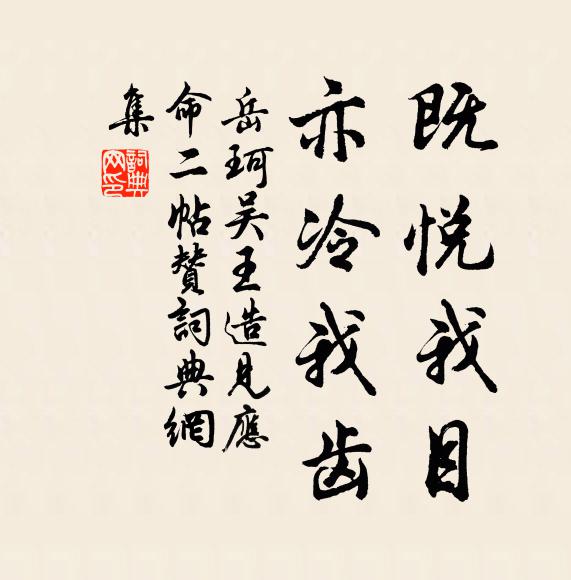 既悦我目
亦冷我齿
岳珂吴王造见應
命二帖贊詞典網
集
詞典网印